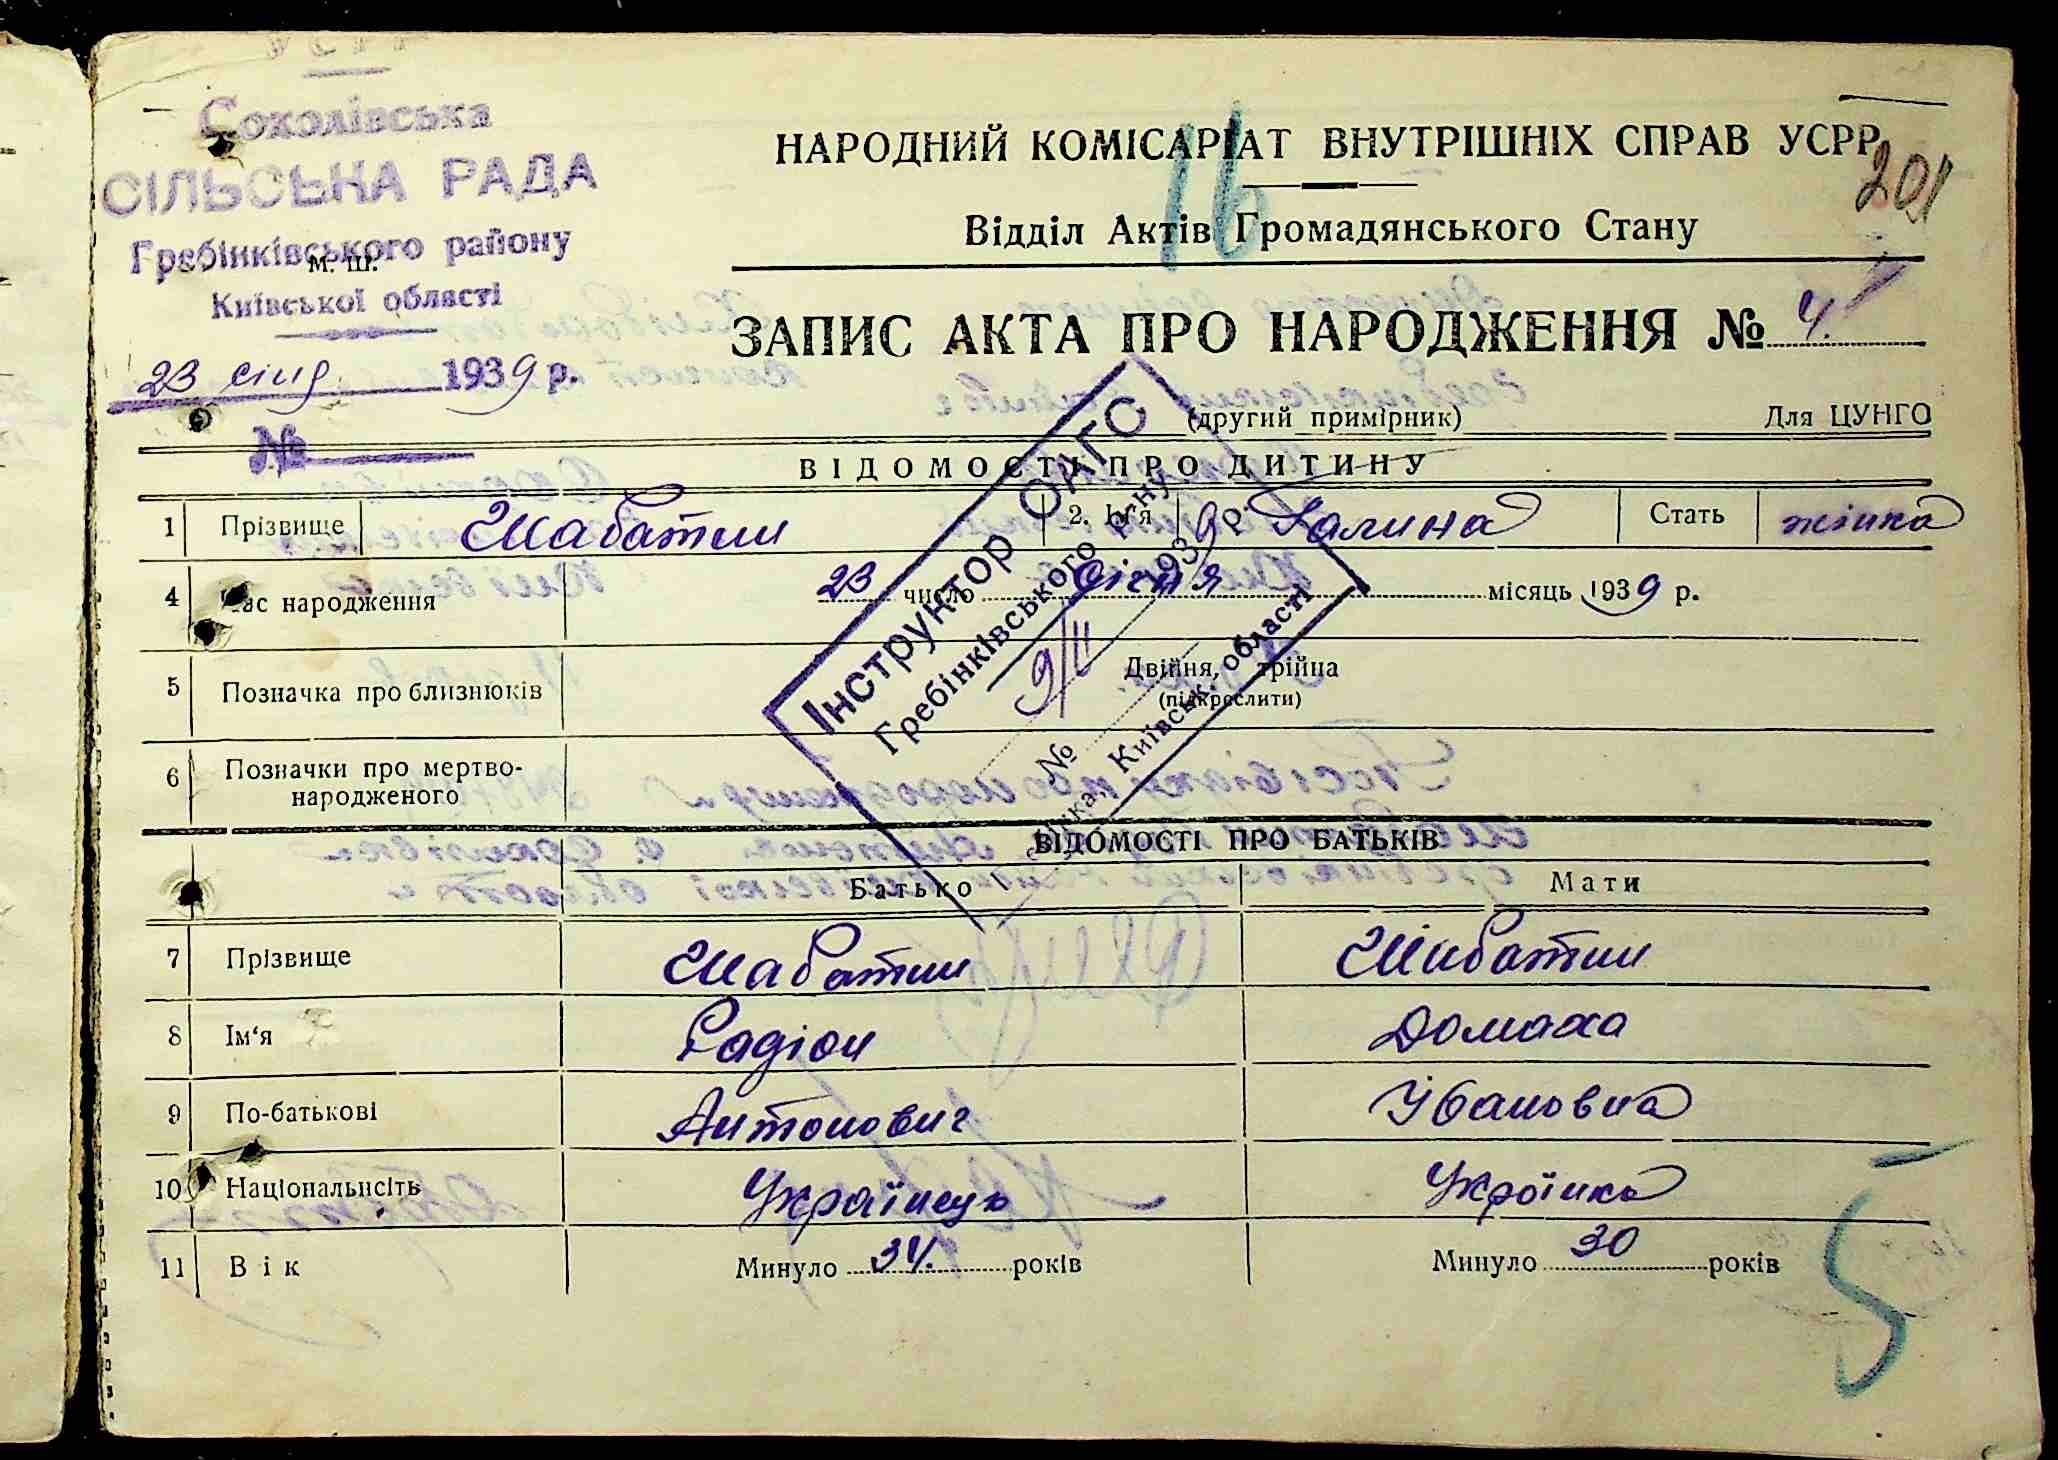 УСРР
Соколівська
СІЛЬСЬКА РАДА
Гребінківського району
М. Ш.
Київської області
23 січ 1939 р.
№
НАРОДНИЙ КОМІСАРІАТ ВНУТРІШНІХ СПРАВ УСРР
201
16
Відділ Актів Громадянського Стану
ЗАПИС АКТА ПРО НАРОДЖЕННЯ № 4.
(другий примірник) Для ЦУНГО
ВІДОМОСТІ ПРО ДИТИНУ
1 Прізвище Шабатин 2. Ім'я Галина Стать жінка
4 Час народження 23 число січня місяць 1939 р.
5 Позначка про близнюків Двійня, трійна
(підкреслити)
6 Позначки про мертво-
народженого
Інструктор ОАГС
Гребінківського р-ну
9/II 1939 р.
№
Київськ. області
ВІДОМОСТІ ПРО БАТЬКІВ
Батько Мати
7 Прізвище Шабатин Шабатин
8 Ім‘я Радіон Домаха
9 По-батькові Антонович Івановна
10 Національність Українець Українка
11 Вік Минуло 34. років Минуло 30 років
5